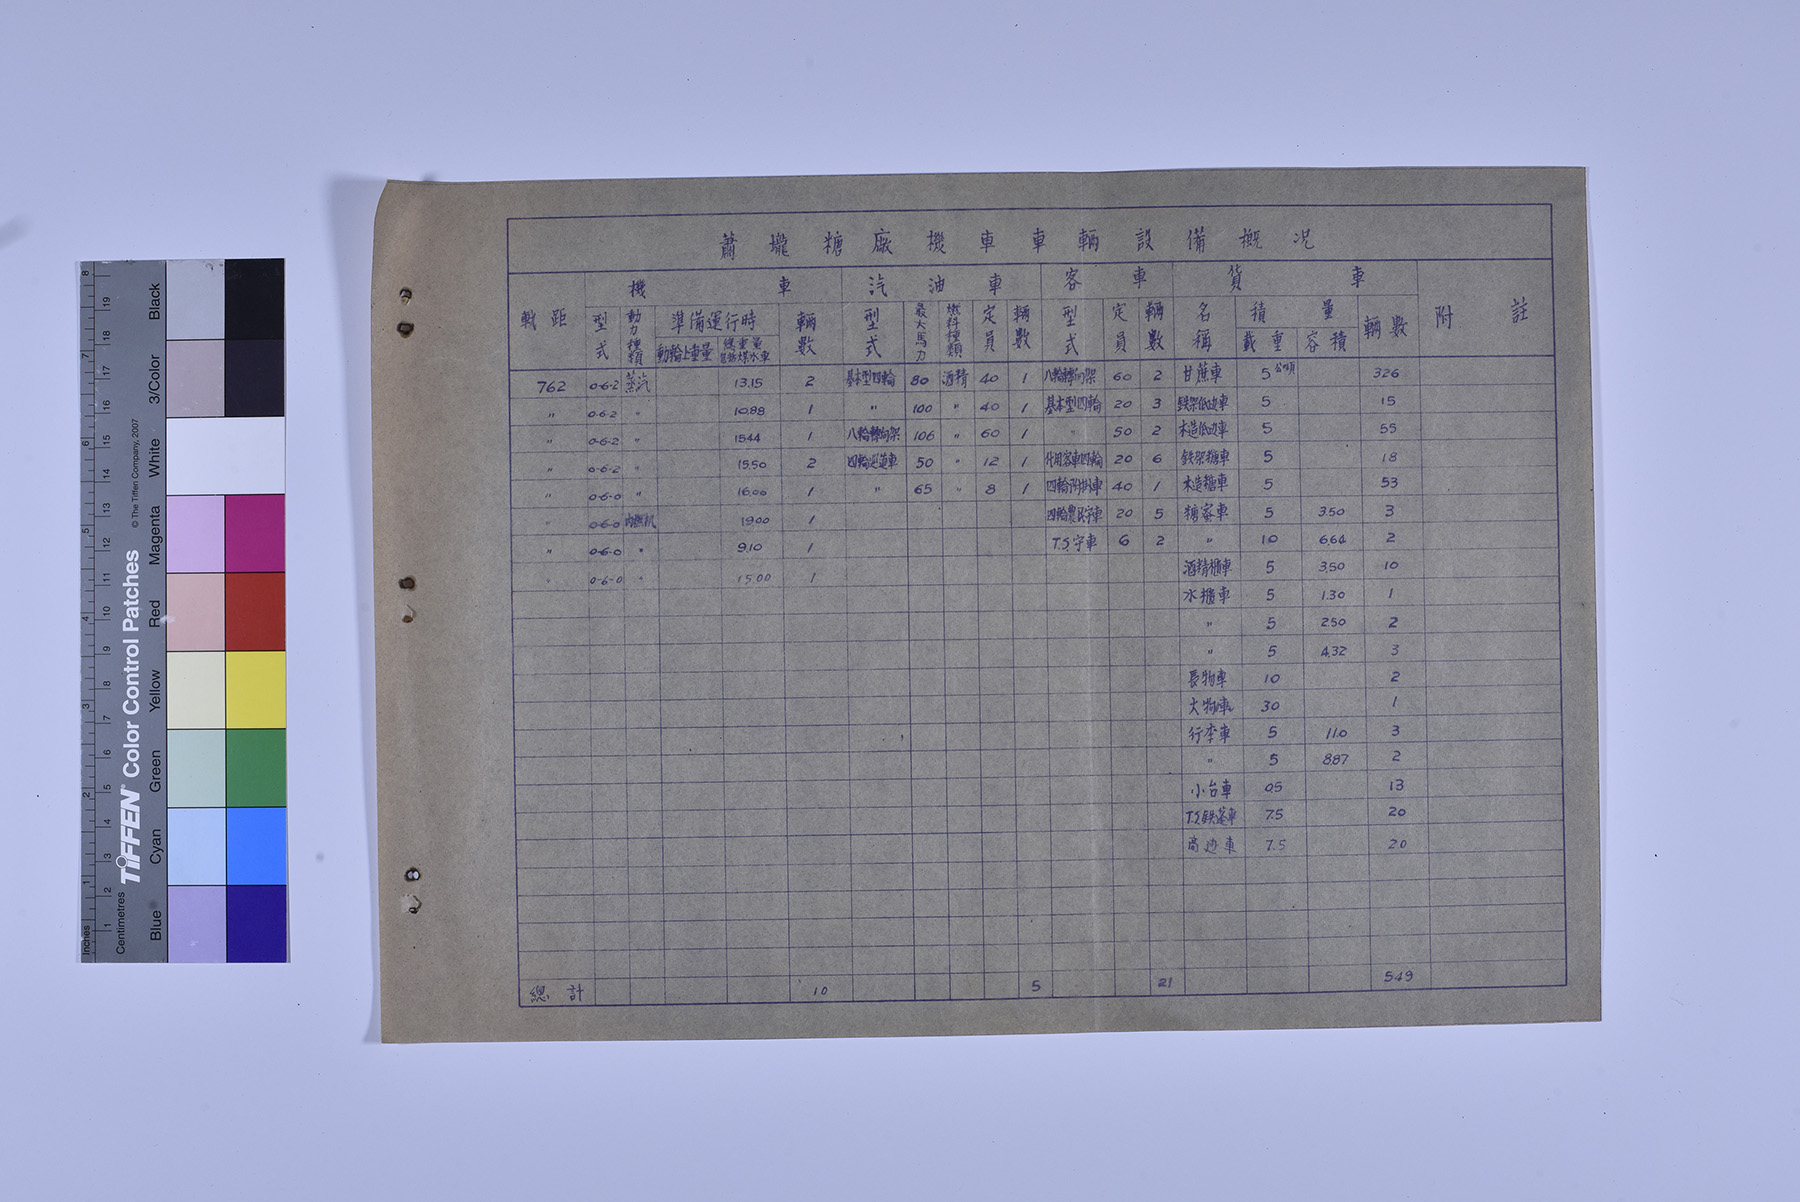 蕭壠糖廠機車車輛設備概況
軌距 機車 汽油車 客車 貨車 附註
型式 動力種類 準備運行時 輛數 型式 最大馬力 燃料種類 定員 輛數 型式 定員 輛數 名稱 積量 輛數
動輪上重量 總重量包括煤水車 載重 容積
762 0-6-2 蒸汽 13.15 2 基本型四輪 80 酒精 40 1 八輪轉向架 60 2 甘蔗車 5公噸 326
〃 0-6-2 〃 10.88 1 〃 100 〃 40 1 基本型四輪 20 3 鉄架低邊車 5 15
〃 0-6-2 〃 15.44 1 八輪轉向架 106 〃 60 1 〃 50 2 木造低邊車 5 55
〃 0-6-2 〃 15.50 2 四輪巡道車 50 〃 12 1 代用客車四輪 20 6 鉄架糖車 5 18
〃 0-6-0 〃 16.00 1 〃 65 〃 8 1 四輪附掛車 40 1 木造糖車 5 53
〃 0-6-0 内燃机 19.00 1 四輪農民守車 20 5 糖蜜車 5 3.50 3
〃 0-6-0 〃 9.10 1 T.S.守車 6 2 〃 10 6.64 2
〃 0-6-0 〃 15.00 1 酒精櫃車 5 3.50 10
水櫃車 5 1.30 1
〃 5 2.50 2
〃 5 4.32 3
長物車 10 2
大物車 30 1
行李車 5 11.0 3
〃 5 8.87 2
小台車 0.5 13
T.S.鉄蓬車 7.5 20
高边車 7.5 20
總計 10 5 21 549
Inches
Centimetres
TIFFEN® Color Control Patches
© The Tiffen Company, 2007
Blue
Cyan
Green
Yellow
Red
Magenta
White
3/Color
Black
1 2 3 4 5 6 7 8
1 2 3 4 5 6 7 8 9 10 11 12 13 14 15 16 17 18 19